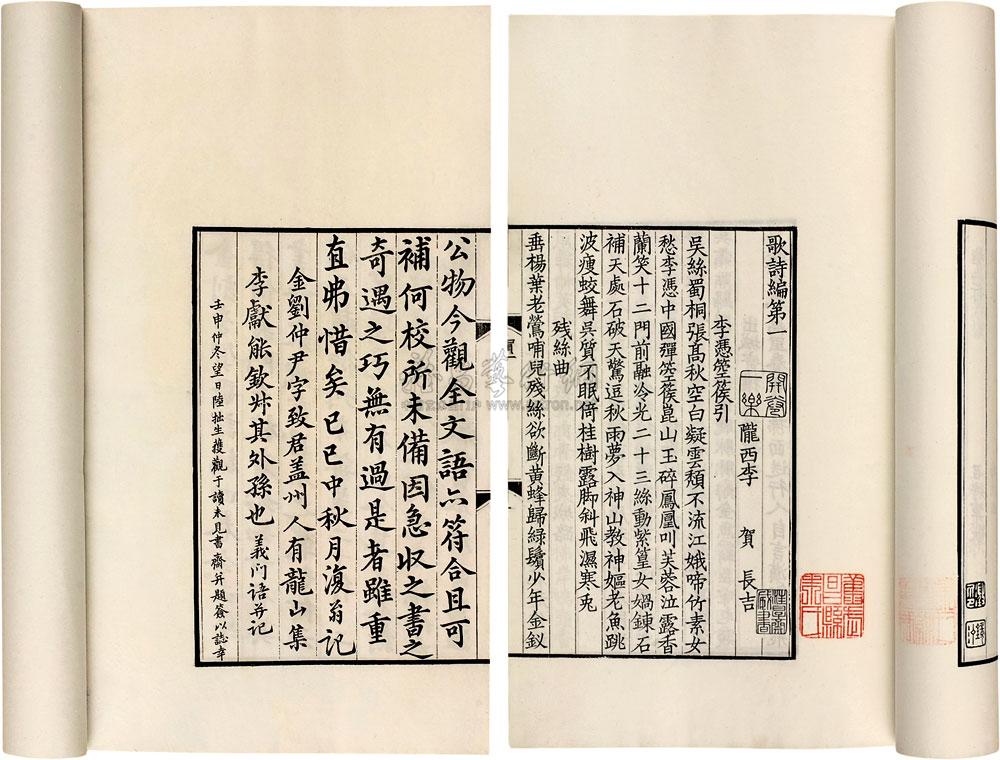 歌詩編第一
隴西李 賀 長吉
李憑箜篌引
吳絲蜀桐張高秋空白凝雲頹不流江娥啼竹素女
愁李憑中國彈箜篌崑山玉碎鳳凰叫芙蓉泣露香
蘭笑十二門前融冷光二十三絲動紫篁女媧鍊石
補天處石破天驚逗秋雨夢入神山教神嫗老魚跳
波瘦蛟舞吳質不眠倚桂樹露脚斜飛濕寒兎
殘絲曲
垂楊葉老鶯哺兒殘絲欲斷黃蜂歸綠鬢少年金釵
公物今觀全文語亦符合且可
補何校所未備因急收之書之
奇遇之巧無有過是者雖重
直弗惜矣己巳中秋月復翁記
金劉仲尹字致君盖州人有龍山集
李獻能欽叔其外孫也 義門語并記
壬申仲冬望日陸拙生獲觀于讀未見書齋并題簽以誌幸